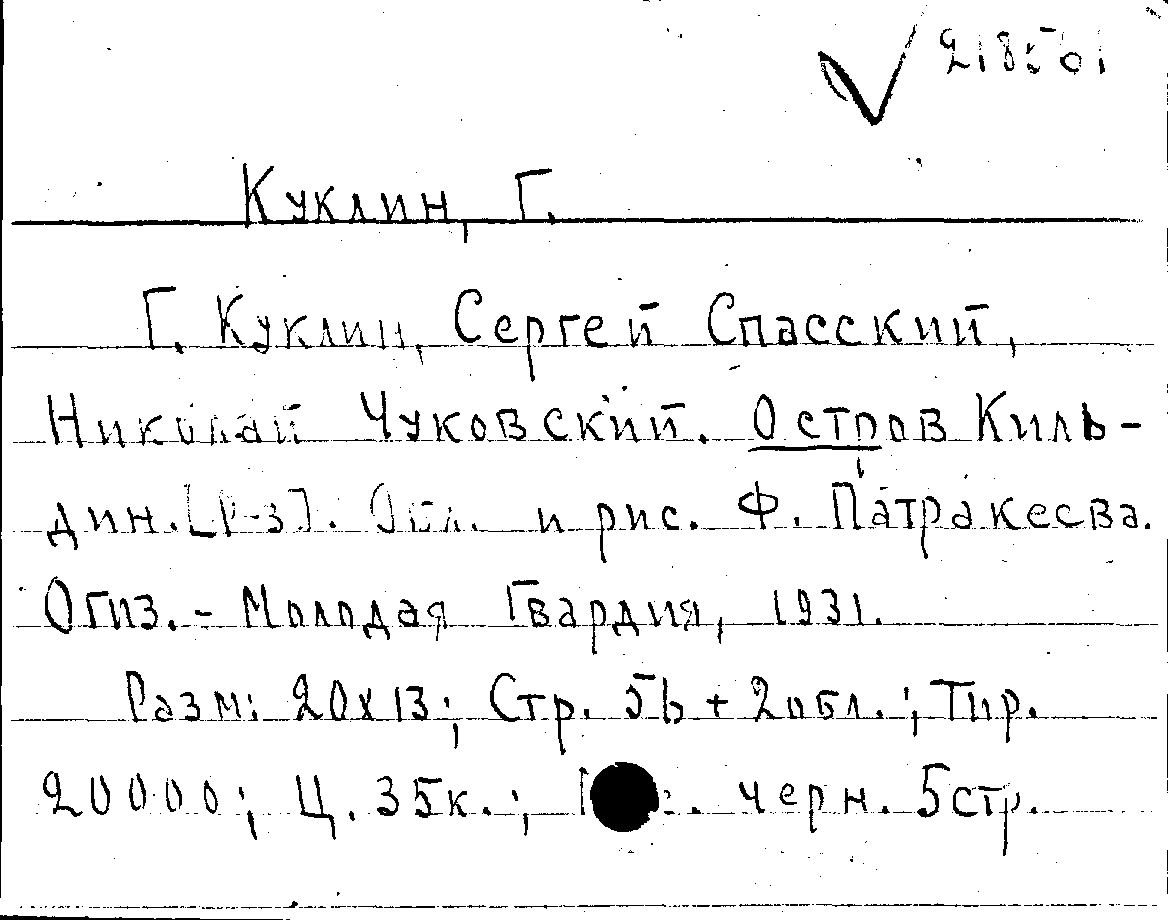 √ 218561
Куклин, Г.
Г. Куклин, Сергей Спасский,
Николай Чуковский. Остров Киль-
дин. [Р-з]. Обл. и рис. Ф. Патракеева.
Огиз. - Молодая Гвардия, 1931.
Разм: 20х13; Стр. 56 + 2 обл.; Тир.
20000; Ц. 35к.; черн. 5 стр.